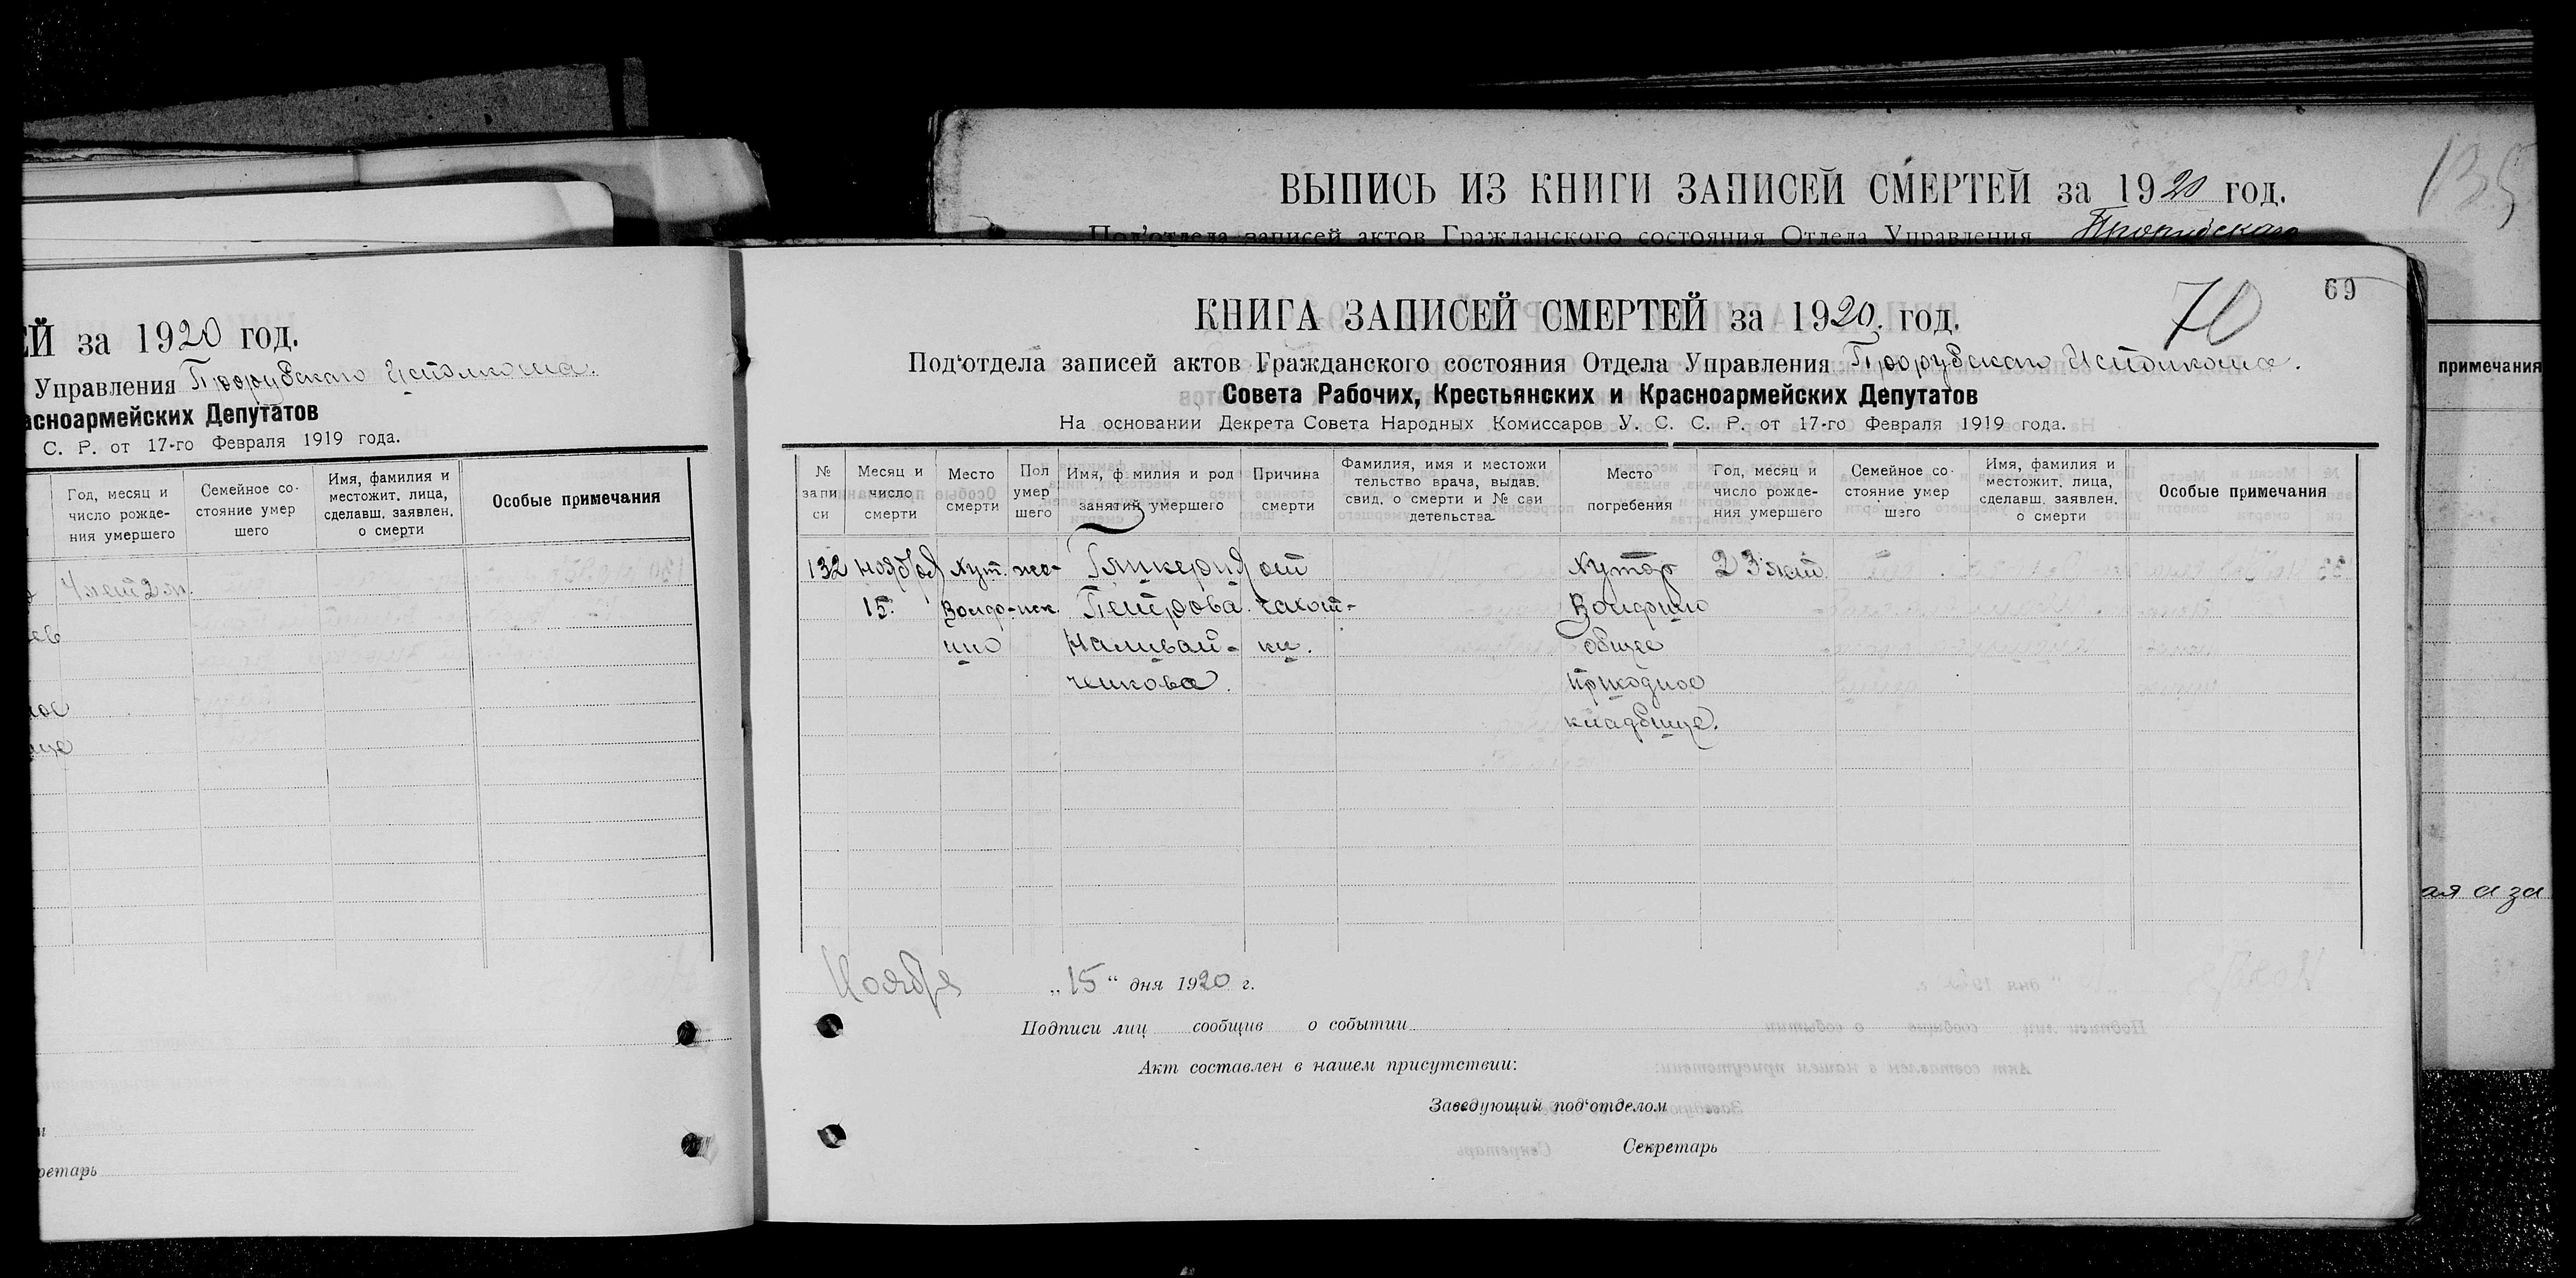 ВЫПИСЬ ИЗ КНИГИ ЗАПИСЕЙ СМЕРТЕЙ за 1920 год.
135
Под'отдела записей актов Гражданского состояния Отдела Управления
примечания
ая а за
ЕЙ за 1920 год.
Управления Прорубскаго Исполкома.
асноармейских Депутатов
С. Р. от 17-го Февраля 1919 года.
Год, месяц и число рожде- ния умершего
Семейное со- стояние умер шего
Имя, фамилия и местожит. лица, сделавш. заявлен. о смерти
Особые примечания
4 лет 2 м.
ретарь
69
70
КНИГА ЗАПИСЕЙ СМЕРТЕЙ за 1920 год.
Под'отдела записей актов Гражданского состояния Отдела Управления Прорубскаго Исполкома.
Совета Рабочих, Крестьянских и Красноармейских Депутатов
На основании Декрета Совета Народных Комиссаров У. С. С. Р. от 17-го Февраля 1919 года.
№ запи си
Месяц и число смерти
Место смерти
Пол умер шего
Имя, ф милия и род занятий умершего
Причина смерти
Фамилия, имя и местожи тельство врача, выдав. свид. о смерти и № сви детельства
Место погребения
Год, месяц и число рожде- ния умершего
Семейное со- стояние умер шего
Имя, фамилия и местожит. лица, сделавш. заявлен. о смерти
Особые примечания
132 ноября Хут. же- Гликерия от Хутор 23 лет
15. нск. Петрова чахот-
Наливай- ки. общее
ченкова. приходное
кладбище.
Ноября „15“ дня 1920 г.
Подписи лиц сообщив о событии
Акт составлен в нашем присутствии:
Заведующий под'отделом
Секретарь